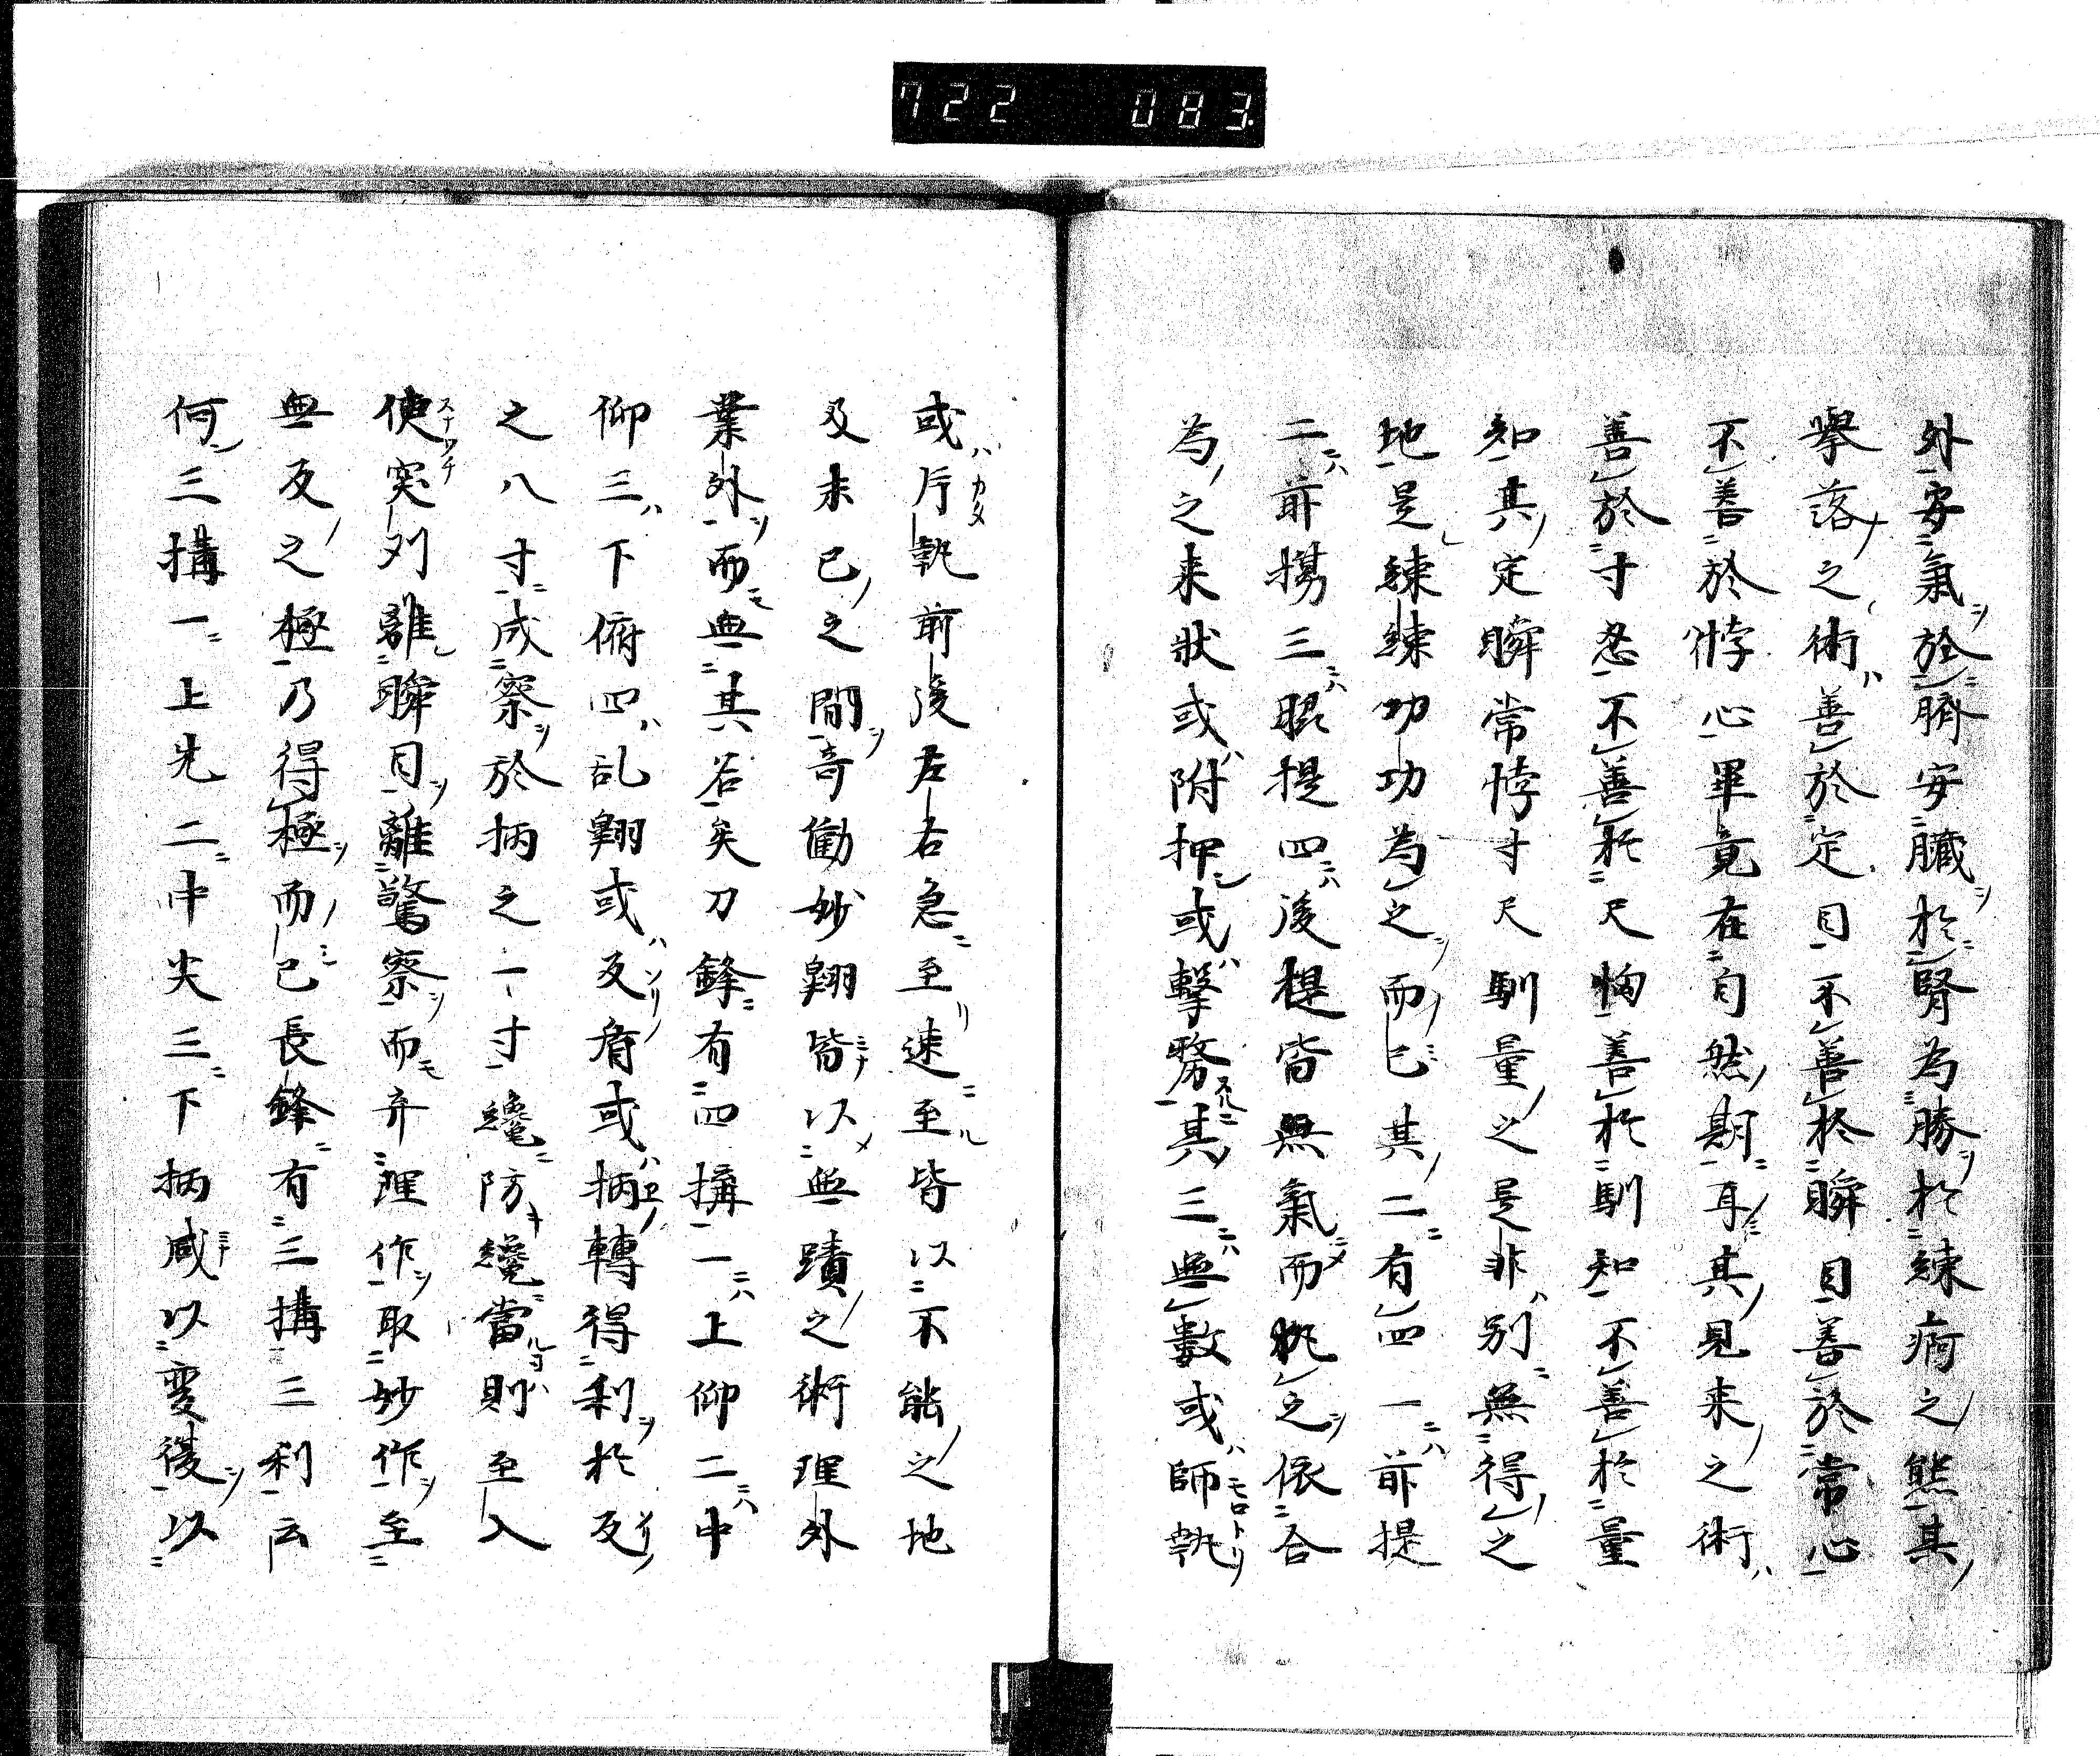 722 083
外安氣於臍安臓於腎為勝於練痾之熊其
擧落之術善於定目不善於瞬目善於常心
不善於悖心畢竟在自然期耳其見来之術
善於寸忽不善於尺恟善於馴知不善於量
知其定瞬常悖寸尺馴量之是非別無得之
地是練練功功為之而已其二有四一前提
二前携三眤提四後提皆無氣而執之依合
為之来狀或附押或擊務其三無數或師執
或片執前後左右急至速至皆以不能之地
及未已之間竒働妙翔皆以無蹟之術理外
業外而無其名矣刀鋒有四搆一上仰二中
仰三下俯四乱翔或反脊或柄轉得利於反
之八寸成察於柄之一寸纔防纔當則至入
使突列離瞬目離驚察而弃理作取妙作至
無反之極乃得極而已長鋒有三搆三利云
何三搆一上先二中尖三下柄咸以変後以